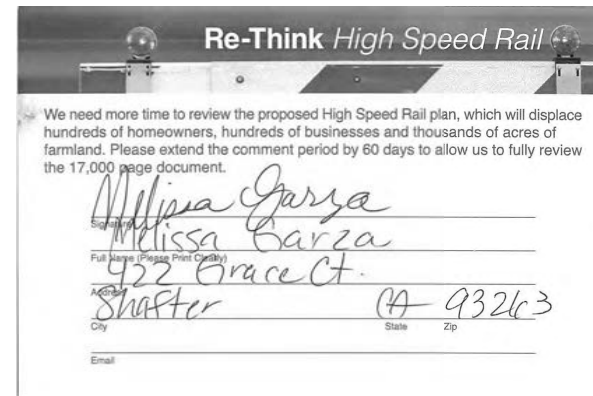 Re-Think High Speed Rail
We need more time to review the proposed High Speed Rail plan, which will displace
hundreds of homeowners, hundreds of businesses and thousands of acres of
farmland. Please extend the comment period by 60 days to allow us to fully review
the 17,000 page document.
Melissa Garza
Signature
Melissa Garza
Full Name (Please Print Clearly)
422 Grace Ct.
Address
Shafter CA 93263
City State Zip
Email